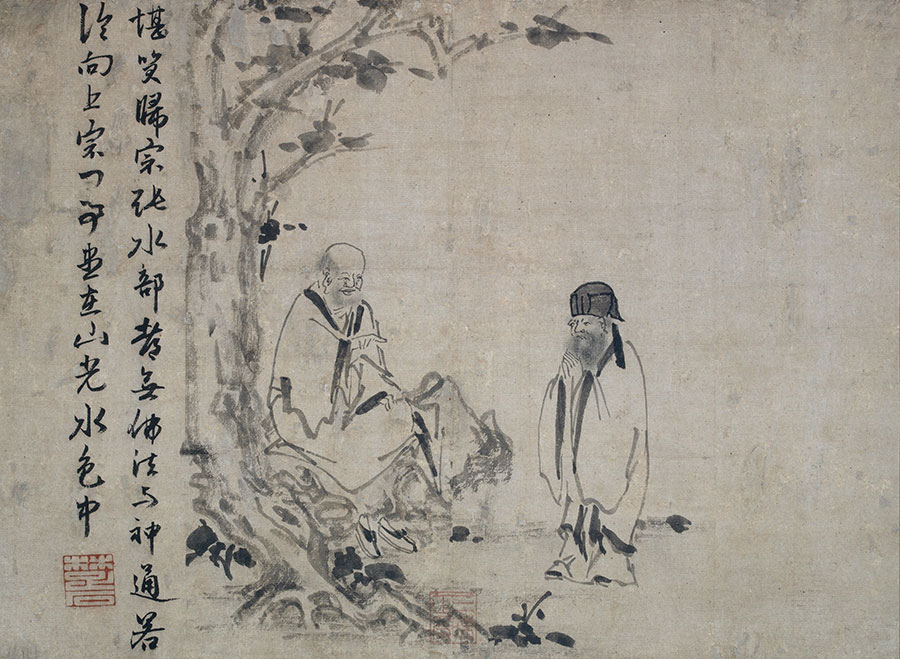 堪笑歸宗張水部都無佛法与神通若
論向上宗门事盡在山光水色中
楚石